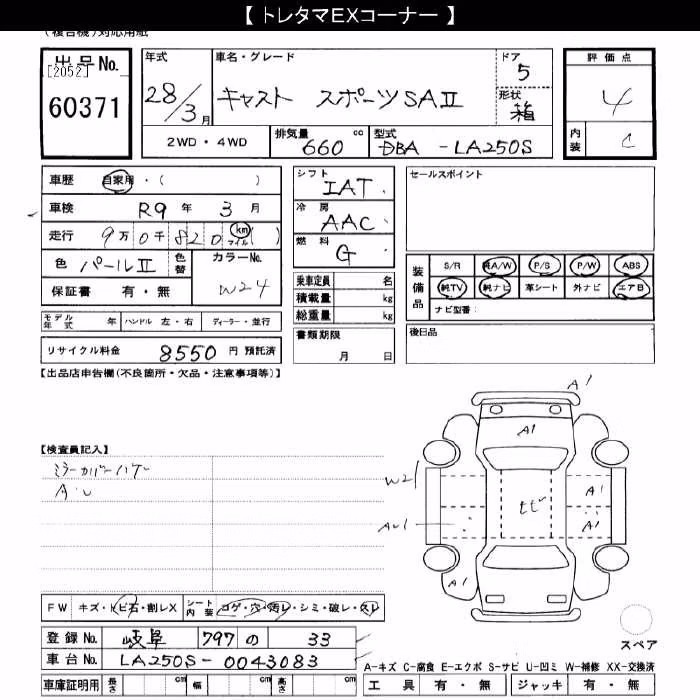 【 トレタマEXコーナー 】
(複合機)対応用紙
出品No.
[2052]
60371
年式
28/3月
車名・グレード
キャスト スポーツSAⅡ
ドア
5
形状
箱
評価点
4
内装
C
2WD・4WD
排気量 660 cc
型式 DBA - LA250S
車歴 自家用・( )
車検 R9年 3月
走行 9万0千820 km マイル( )
色 パールⅡ
色替
カラーNo.
W24
保証書 有・無
モデル年式 年 ハンドル 左・右 ディーラー・並行
リサイクル料金 8550 円 預託済
シフト
IAT
冷房
AAC
燃料
G
乗車定員 名
積載量 kg
総重量 kg
書類期限
月 日
セールスポイント
装備品
S/R 純A/W P/S P/W ABS
純TV 純ナビ 革シート 外ナビ エアB
ナビ型番:
後日品
【出品店申告欄(不良箇所・欠品・注意事項等)】
【検査員記入】
ミラーカバーハゲ
A・U
A1
A1
W2
AU1
ヒビ
A1
A1
A1
FW キズ・トビ石・割レX
シート内装 コゲ・穴・汚レ・シミ・破レ・スレ
登録No. 岐阜 797 の 33
車台No. LA250S-0043083
車庫証明用 長さ cm 幅 cm 高さ cm
スペア
A-キズ C-腐食 E-エクボ S-サビ U-凹ミ W-補修 XX-交換済
工具 有・無 ジャッキ 有・無